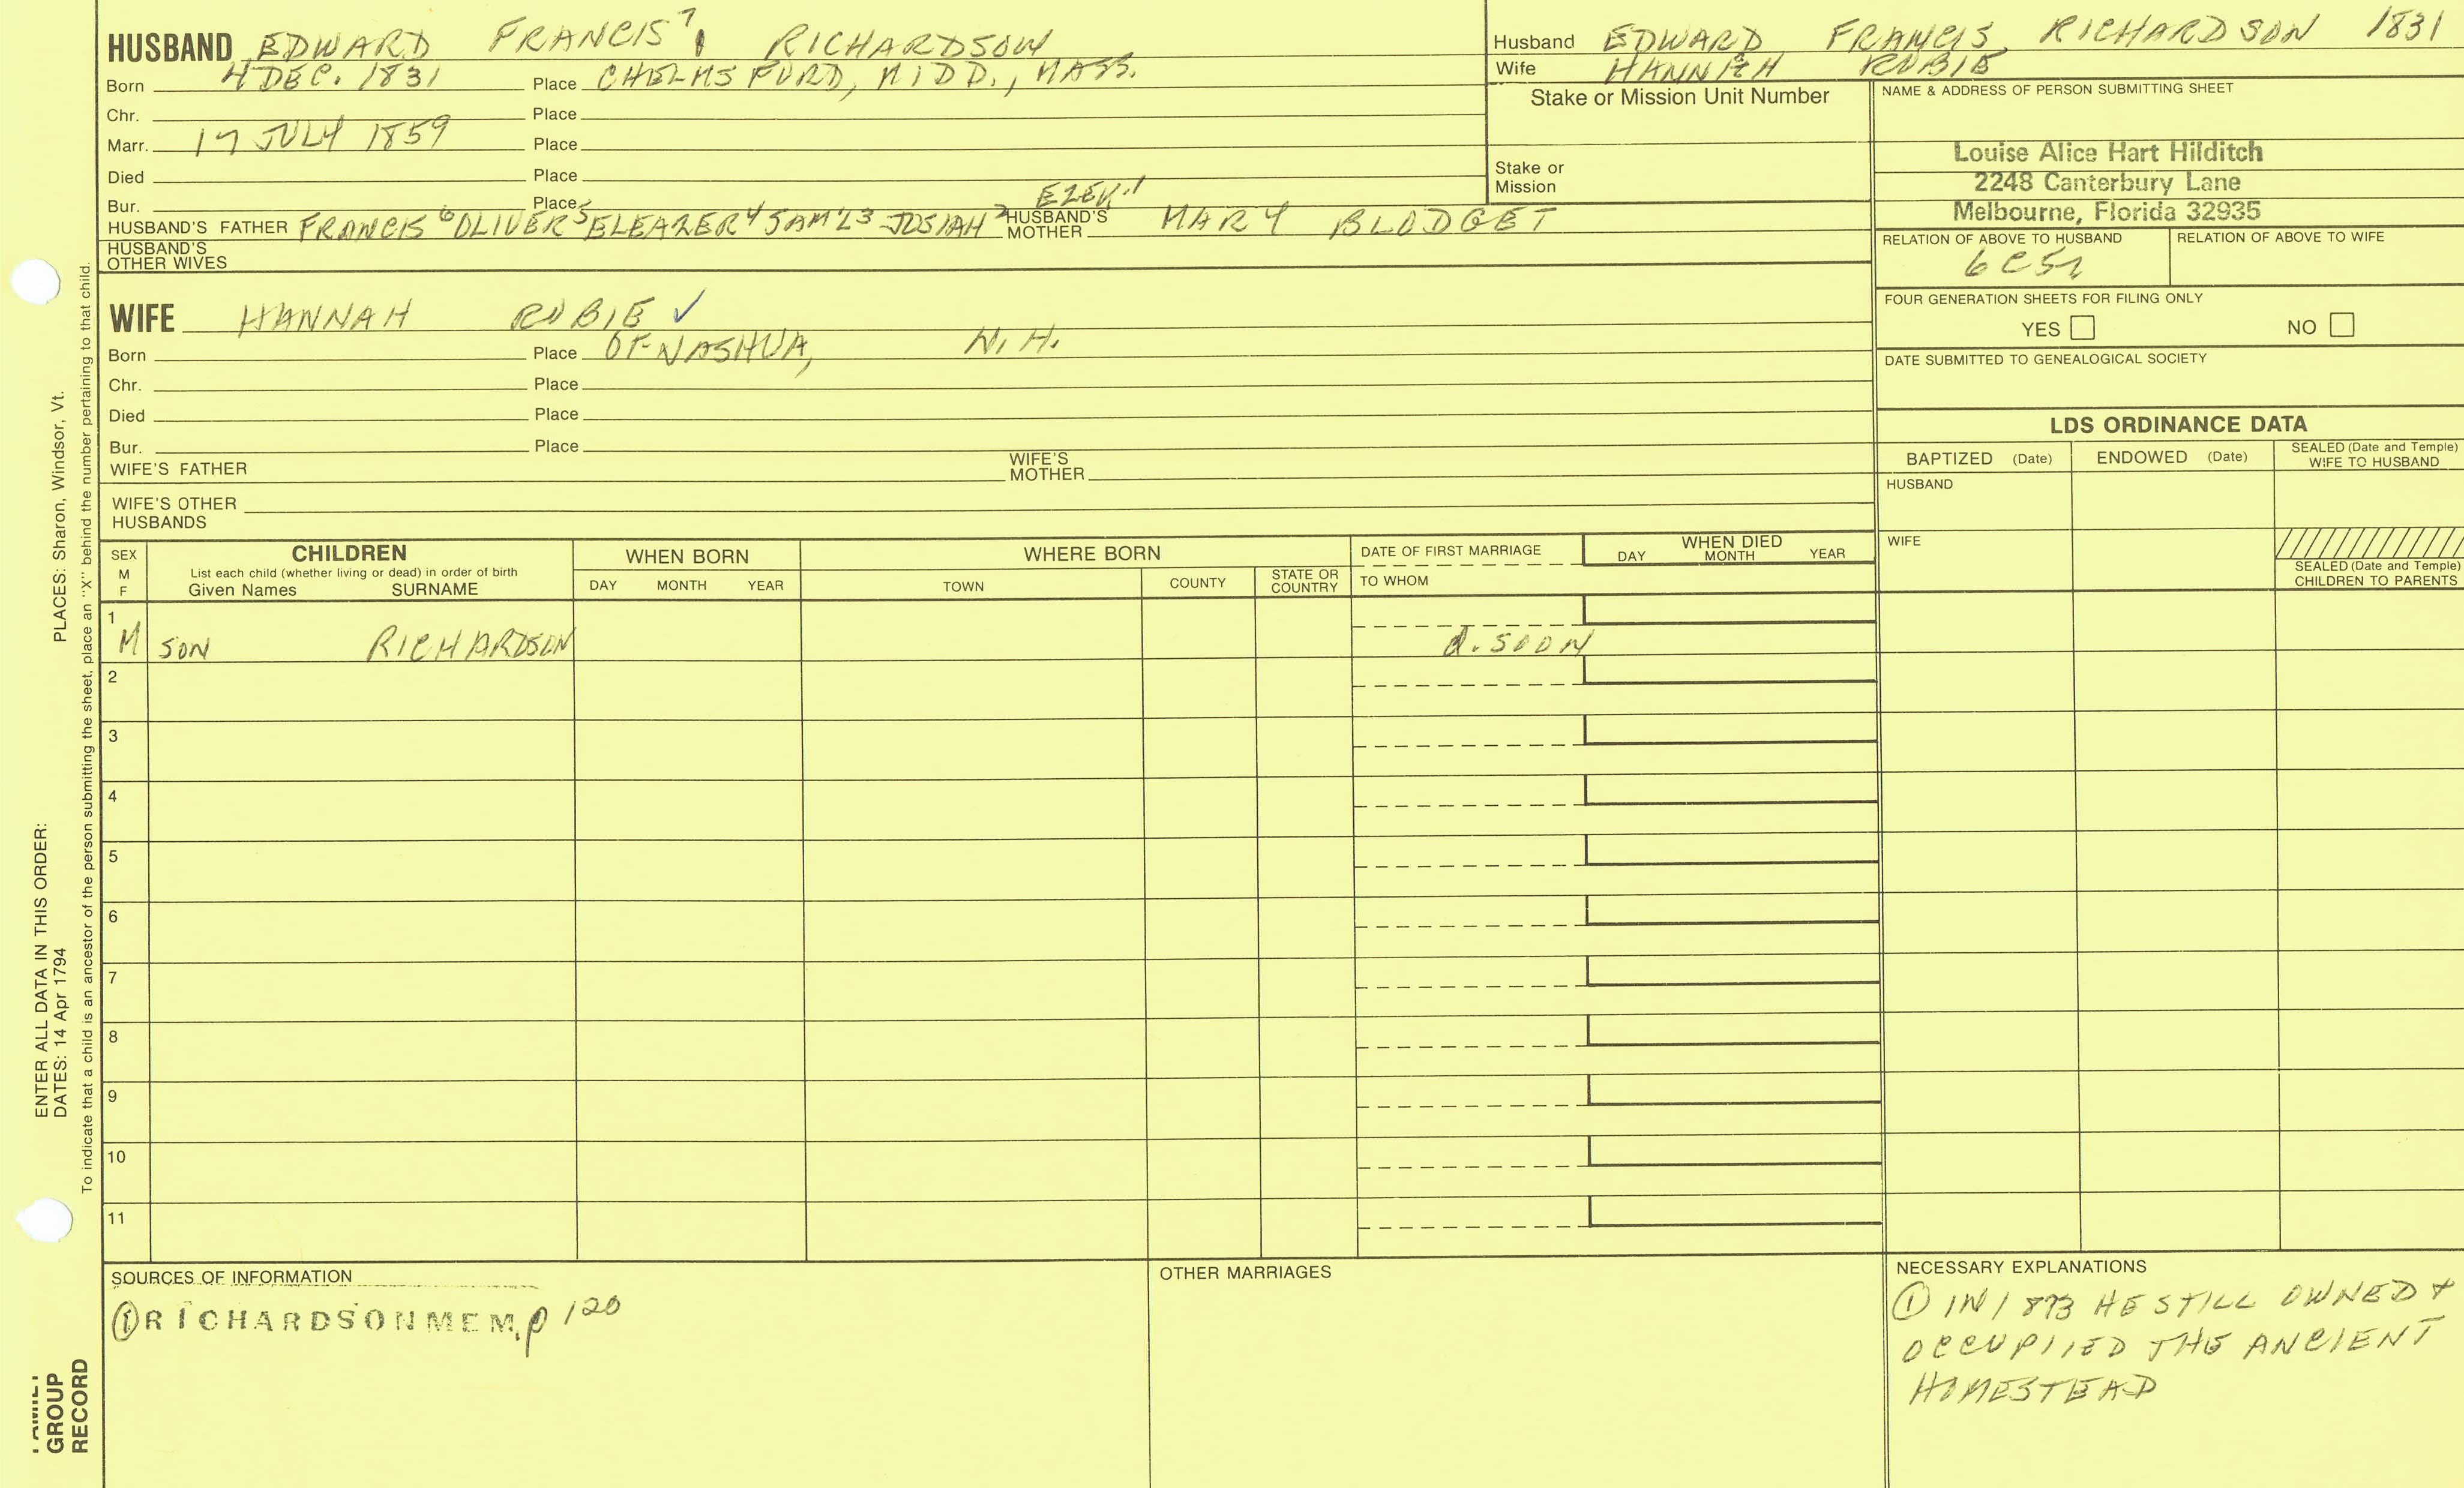 HUSBAND EDWARD FRANCIS 7 RICHARDSON
Born 4 DEC. 1831 Place CHELMSFORD, MIDD., MASS.
Chr. Place
Marr. 17 JULY 1859 Place
Died Place
Bur. Place
HUSBAND'S FATHER FRANCIS 6 OLIVER 5 ELEAZER 4 SAM'L 3 JOSIAH 2 EZEK. 1 HUSBAND'S MOTHER MARY BLODGET
HUSBAND'S OTHER WIVES
Husband EDWARD FRANCIS RICHARDSON 1831
Wife HANNAH RUBIE
Stake or Mission Unit Number
Stake or Mission
NAME & ADDRESS OF PERSON SUBMITTING SHEET
Louise Alice Hart Hilditch
2248 Canterbury Lane
Melbourne, Florida 32935
RELATION OF ABOVE TO HUSBAND RELATION OF ABOVE TO WIFE
6C5R
FOUR GENERATION SHEETS FOR FILING ONLY
YES NO
DATE SUBMITTED TO GENEALOGICAL SOCIETY
WIFE HANNAH RUBIE ✓
Born Place OF NASHUA, N.H.
Chr. Place
Died Place
Bur. Place
WIFE'S FATHER WIFE'S MOTHER
WIFE'S OTHER HUSBANDS
LDS ORDINANCE DATA
BAPTIZED (Date) ENDOWED (Date) SEALED (Date and Temple) WIFE TO HUSBAND
HUSBAND
WIFE
SEALED (Date and Temple) CHILDREN TO PARENTS
SEX M F
CHILDREN
List each child (whether living or dead) in order of birth
Given Names SURNAME
WHEN BORN
DAY MONTH YEAR
WHERE BORN
TOWN COUNTY STATE OR COUNTRY
DATE OF FIRST MARRIAGE
TO WHOM
WHEN DIED
DAY MONTH YEAR
1 M SON RICHARDSON d. SOON
2
3
4
5
6
7
8
9
10
11
SOURCES OF INFORMATION
① RICHARDSON MEM. p 120
OTHER MARRIAGES
NECESSARY EXPLANATIONS
① IN 1873 HE STILL OWNED &
OCCUPIIED THE ANCIENT
HOMESTEAD
ENTER ALL DATA IN THIS ORDER:
DATES: 14 Apr 1794 PLACES: Sharon, Windsor, Vt.
To indicate that a child is an ancestor of the person submitting the sheet, place an "X" behind the number pertaining to that child.
FAMILY
GROUP
RECORD